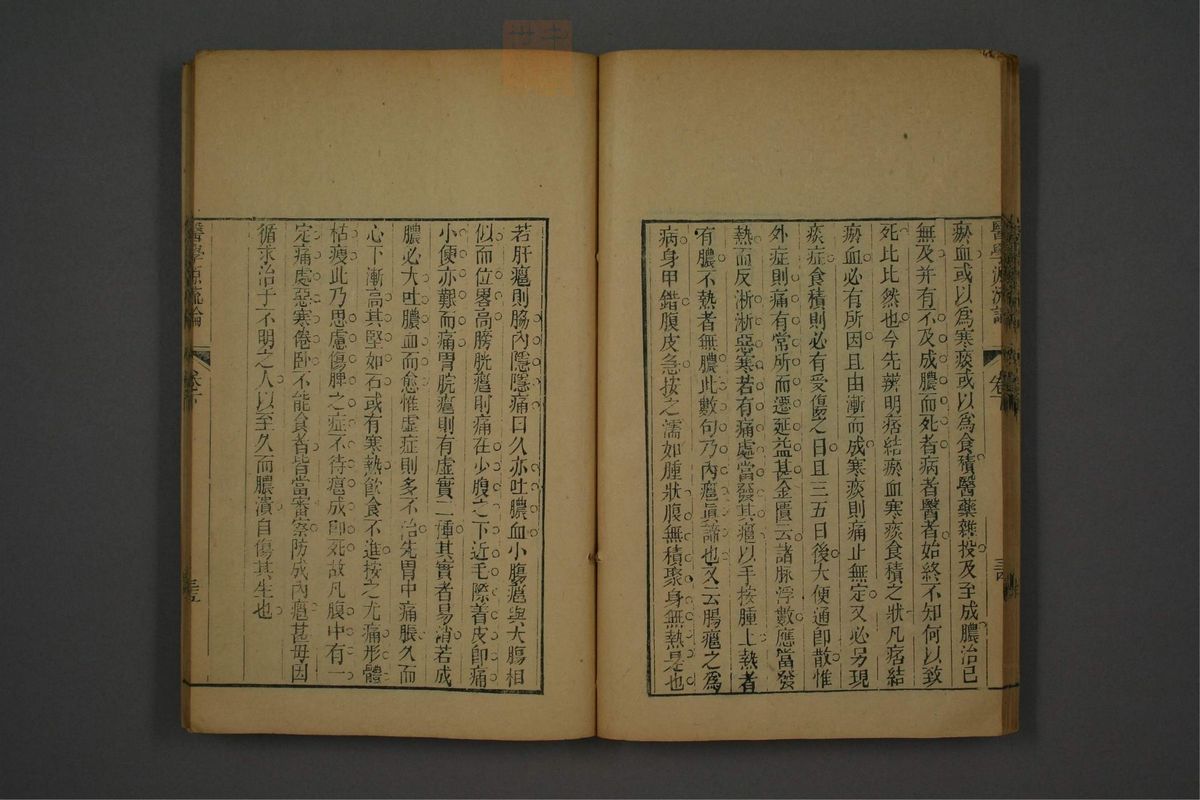 醫學源流論 卷下 三古
瘀血或以爲寒痰或以爲食積醫藥雜投及至成膿治已
無及并有不及成膿而死者病者醫者始終不知何以致
死比比然也今先辨明痞結瘀血寒痰食積之狀凡痞結
瘀血必有所因且由漸而成寒痰則痛止無定又必另現
痰症食積則必有受傷之日且三五日後大便通卽散惟
外症則痛有常所而遷延益甚金匱云諸脉浮數應當發
熱而反淅淅惡寒若有痛處當發其癰以手按腫上熱者
有膿不熱者無膿此數句乃內癰眞諦也又云腸癰之爲
病身甲錯腹皮急按之濡如腫狀腹無積聚身無熱是也
若肝癰則脇內隱隱痛日久亦吐膿血小腸癰與大腸相
似而位畧高膀胱癰則痛在少腹之下近毛際着皮卽痛
小便亦艱而痛胃脘癰則有虛實二種其實者易消若成
膿必大吐膿血而愈惟虛症則多不治先胃中痛脹久而
心下漸高其堅如石或有寒熱飮食不進按之尤痛形體
枯瘦此乃思慮傷脾之症不待癰成卽死故凡腹中有一
定痛處惡寒倦臥不能食者皆當審察防成內癰甚毋因
循求治于不明之人以至久而膿潰自傷其生也
醫學源流論 卷下